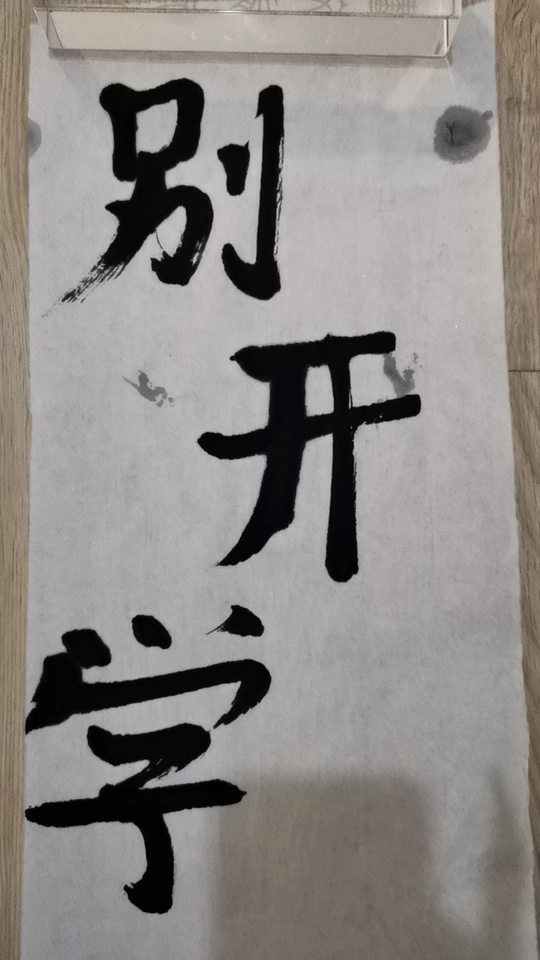 别
开
学